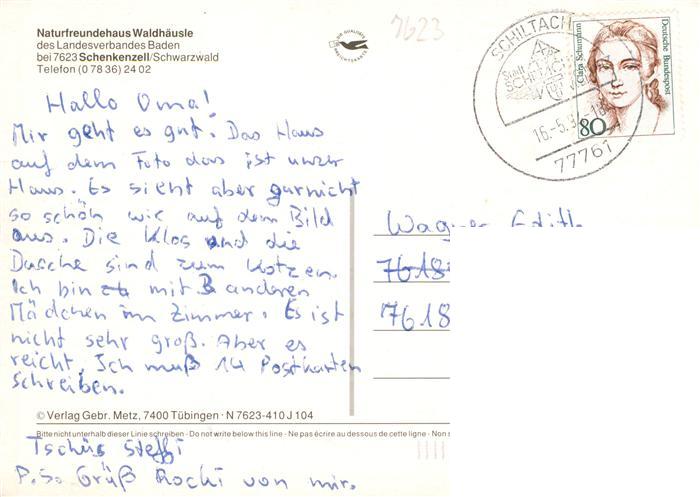 Naturfreundehaus Waldhäusle
des Landesverbandes Baden
bei 7623 Schenkenzell/Schwarzwald
Telefon (0 78 36) 24 02
7623
SCHILTACH
Stadt
SCHILTACH
16-5.9
-18
77761
Deutsche Bundespost
Clara Schumann
80
Hallo Oma!
Mir geht es gut. Das Haus
auf dem Foto das ist unser
Haus. Es sieht aber garnicht
so schön wie auf dem Bild
aus. Die Klos und die
Dusche sind zum Kotzen.
Ich bin zu mit 3 anderen
Mädchen im Zimmer. Es ist
nicht sehr groß. Aber es
reicht. Ich muß 14 Postkarten
schreiben.
Wagner Edith
7618
7618
© Verlag Gebr. Metz, 7400 Tübingen · N 7623-410 J 104
Bitte nicht unterhalb dieser Linie schreiben - Do not write below this line - Ne pas écrire au dessous de cette ligne - Non s
Tschüs Steffi
P.S. Grüß Rocki von mir.